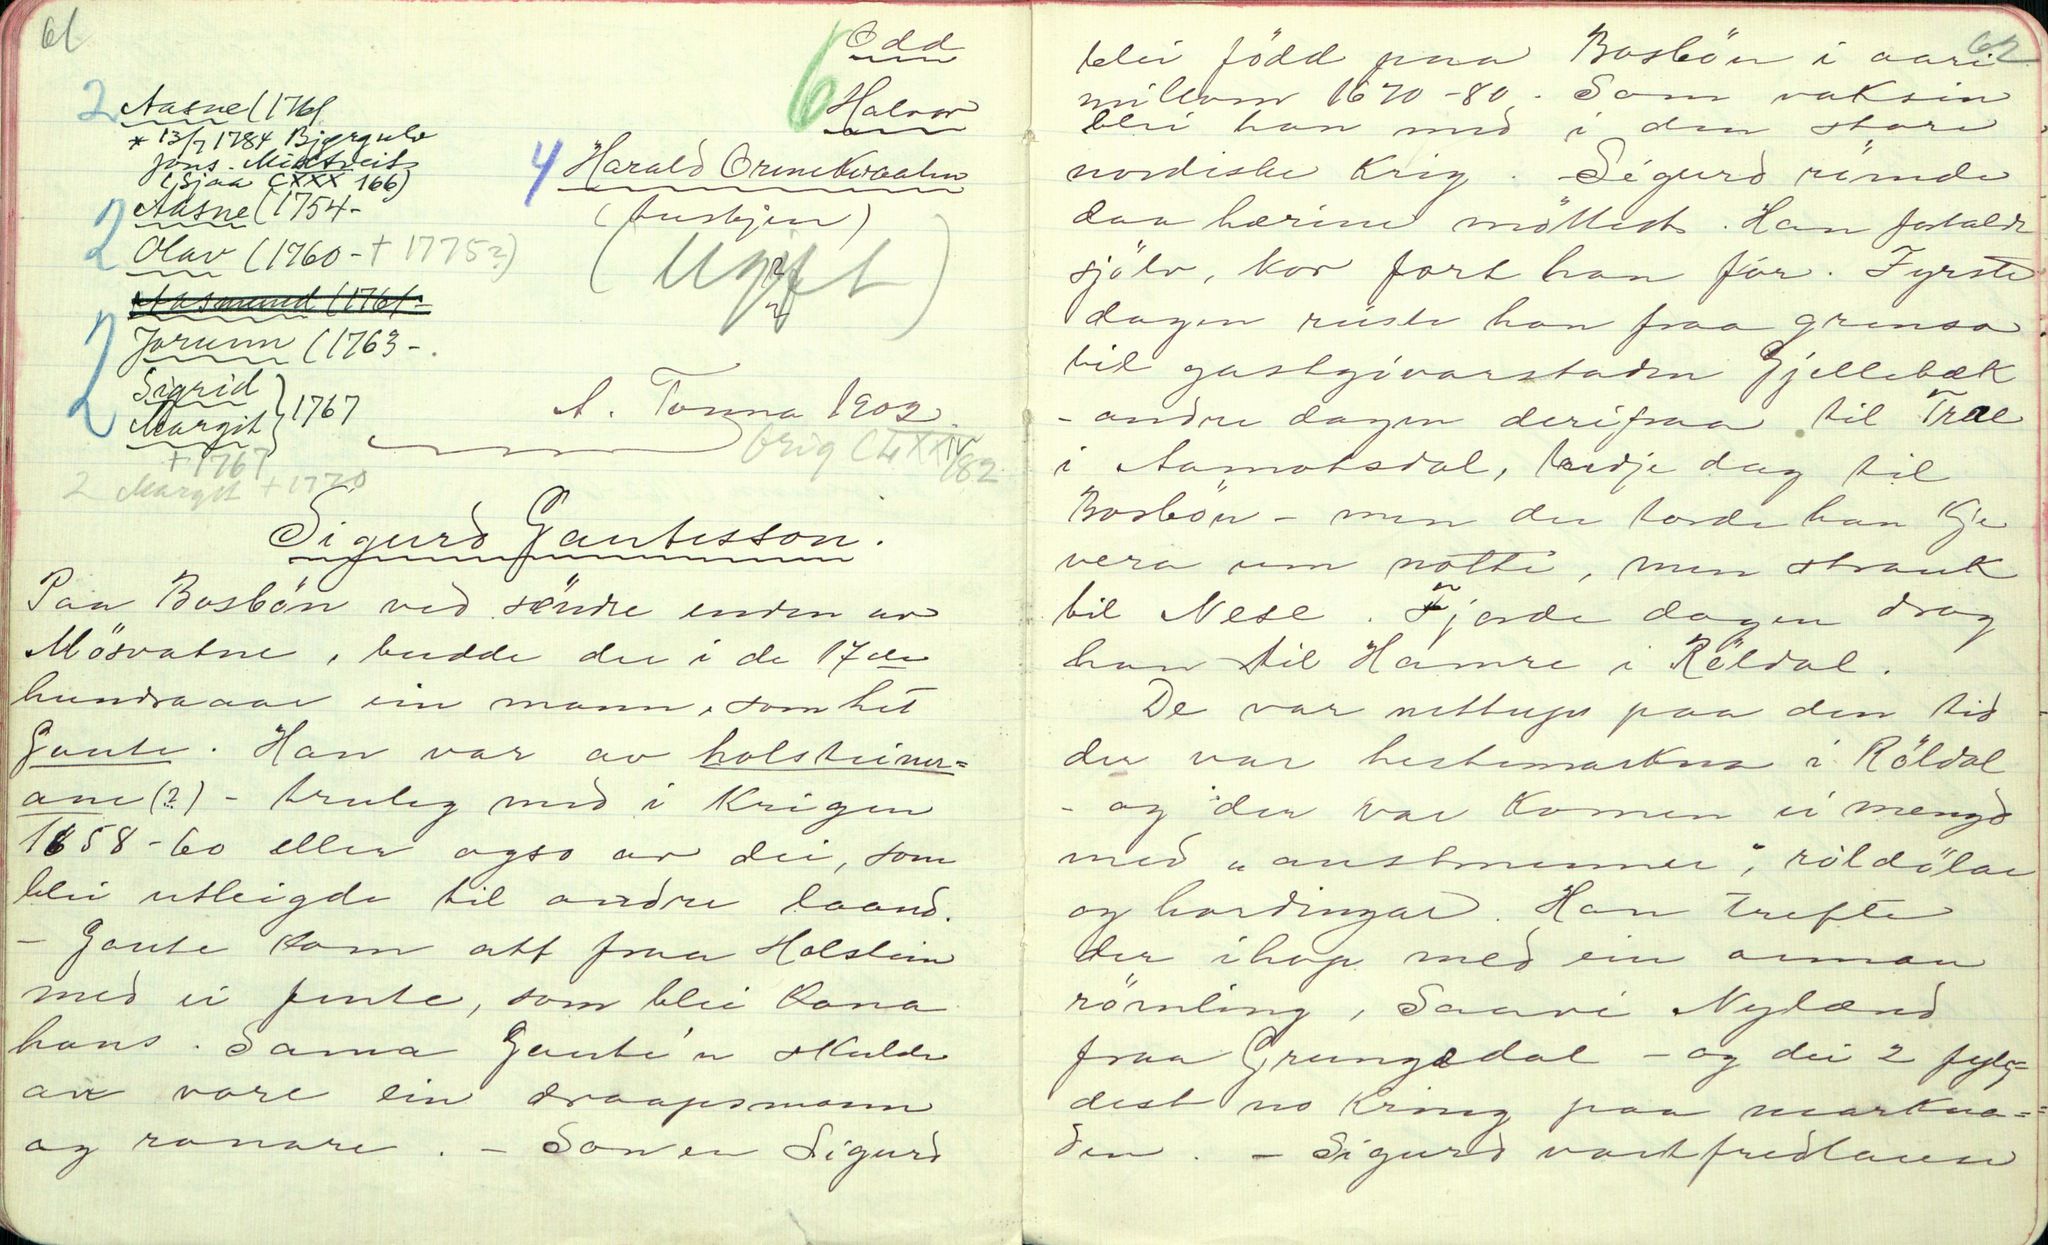 61
Odd
Halvor
2 Aasne (1761
* 13/7 1784 Bjørgulv
Jons. Midtveit
(Sjaa CXXX 166)
4 Harald Ormekvaalen
(tuskjen)
(Ugift)
2 Aasne (1754-
Olav (1760 - + 1775?)
Aasmund (1761-
2 Jorunn (1763-
Sigrid
Margit } 1767
+ 1767
2 Margit + 1770
A. Tonna 1902
Orig CLXXIV
182
Sigurd Gautesson.
Paa Bosbön ved söndre enden av
Mösvatne, budde dei i de 17de
hundraaar ein mann, som het
Gaute. Han var av holsteiner=
ane (?) - truleg med i Krigen
1658-60 eller ogso av dei, som
blei utleigde til andre laand.
- Gaute kom att fraa Holstein
med ei jente, som blei Kona
hans. Sama Gaute'n skulde
au vore ein draapsmann
og ranare. - Sonen Sigurd
62
blei född paa Bosbön i aari
millom 1670-80. Som vaksin
blei han med i den store
nordiske Krig. - Sigurd römde
daa hærine möttest. Han fortalde
sjölv, kor fort han för. Fyrste
dagen reiste han fraa grensa
til gastgivarstaden Gjellebæk
- andre dagen derifraa til Træe
i Aamotsdal, tridje dag til
Bosbön - men der torde han kje
vera um notti, men strauk
til Nesl. Fjorde dagen drog
han til Hamre i Röldal.
De var nettupp paa den tid
der var hestemarkna i Röldal
- og der var komen ei mengd
med "austmenner", röldölar
og hardingar. Han trefte
der ihop med ein annan
römling, Saavi Nylænd
fraa Grungedal - og dei 2 fylg=
dest no kring paa markna=
den. - Sigurd vart fredlaus